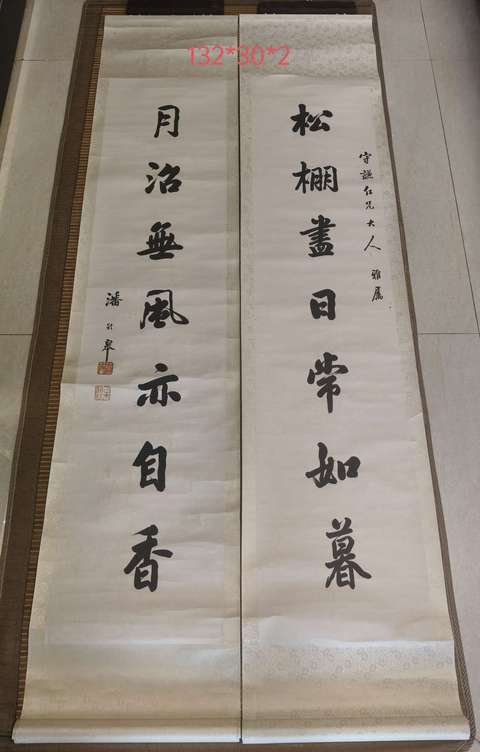 132*30*2
守謙仁兄大人 雅屬
松棚盡日常如暮
月沼無風亦自香
潘齡皋